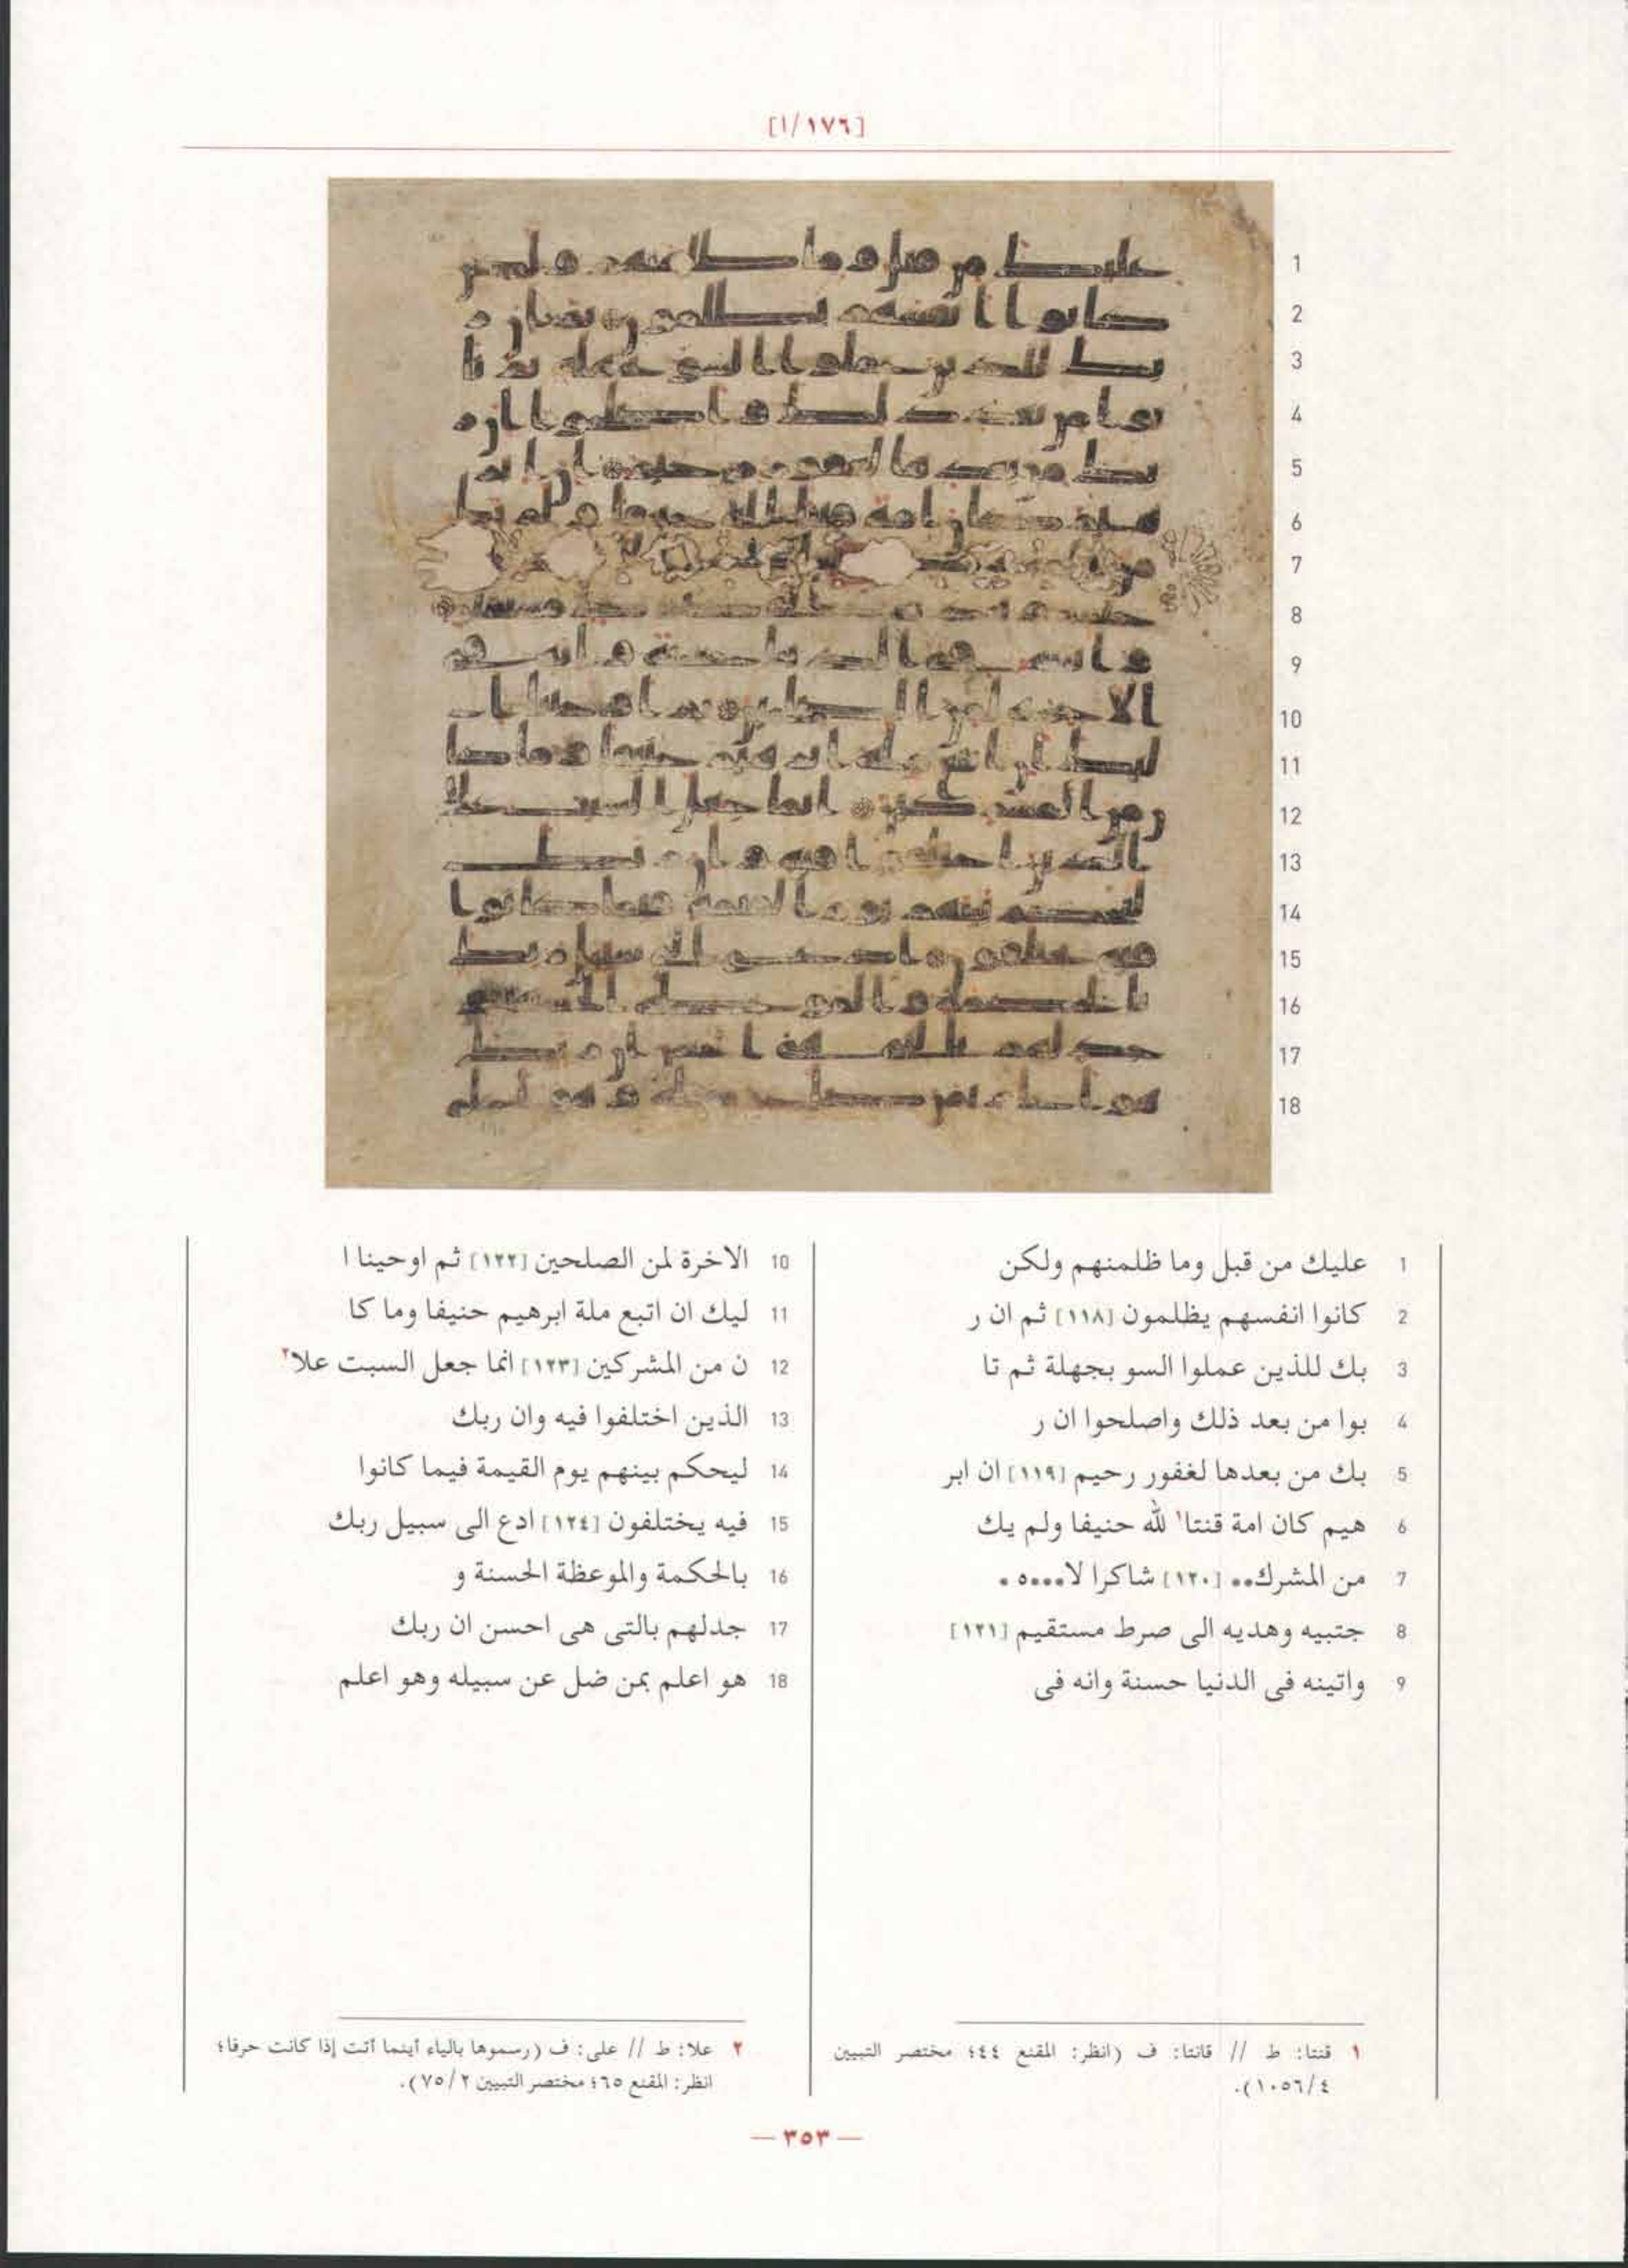 [١٧٦/ا]
1
2
3
4
5
6
7
8
9
10
11
12
13
14
15
16
17
18
1 عليك من قبل وما ظلمنهم ولكن
2 كانوا انفسهم يظلمون [١١٨] ثم ان ر
3 بك للذين عملوا السو بجهلة ثم تا
4 بوا من بعد ذلك واصلحوا ان ر
5 بك من بعدها لغفور رحيم [١١٩] ان ابر
6 هيم كان امة قنتا١ لله حنيفا ولم يك
7 من المشرك•• [١٢٠] شاكرا لا•••٥ •
8 جتبيه وهديه الى صرط مستقيم [١٢١]
9 واتينه فى الدنيا حسنة وانه فى
10 الاخرة لمن الصلحين [١٢٢] ثم اوحينا ا
11 ليك ان اتبع ملة ابرهيم حنيفا وما كا
12 ن من المشركين [١٢٣] انما جعل السبت علا٢
13 الذين اختلفوا فيه وان ربك
14 ليحكم بينهم يوم القيمة فيما كانوا
15 فيه يختلفون [١٢٤] ادع الى سبيل ربك
16 بالحكمة والموعظة الحسنة و
17 جدلهم بالتى هى احسن ان ربك
18 هو اعلم بمن ضل عن سبيله وهو اعلم
١ قنتا: ط // قانتا: ف (انظر: المقنع ٤٤؛ مختصر التبيين
١٠٥٦/٤).
٢ علا: ط // على: ف (رسموها بالياء أينما أتت إذا كانت حرفا؛
انظر: المقنع ٦٥؛ مختصر التبيين ٧٥/٢).
— ٣٥٣ —